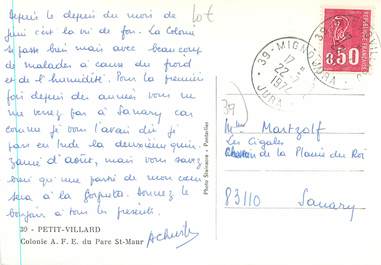 Depuis le début du mois de
juin c'est la vie de fou. La Colonie
se passe bien mais avec beaucoup
de malades à cause du froid
et de l'humidité. Pour la première
fois depuis des années vous ne
me verrez pas à Sanary car
comme je vous l'avais dit je
pars en Inde la deuxième quin-
zaine d'Août, mais vous savez
bien qu'une partie de mon cœur
sera à la Gorguette. Donnez le
bonjour à tous les présents.
AChurle
39 - PETIT-VILLARD
Colonie A. F. E. du Parc St-Maur
lot
39
Photo Stainacre - Pontarlier
39 - MIGNOVILLARD
17 H
22 - 7
1974
JURA
0,50
Mme Martzolf
Les Cigales
Chemin de la Plaine du Roi
83110 Sanary